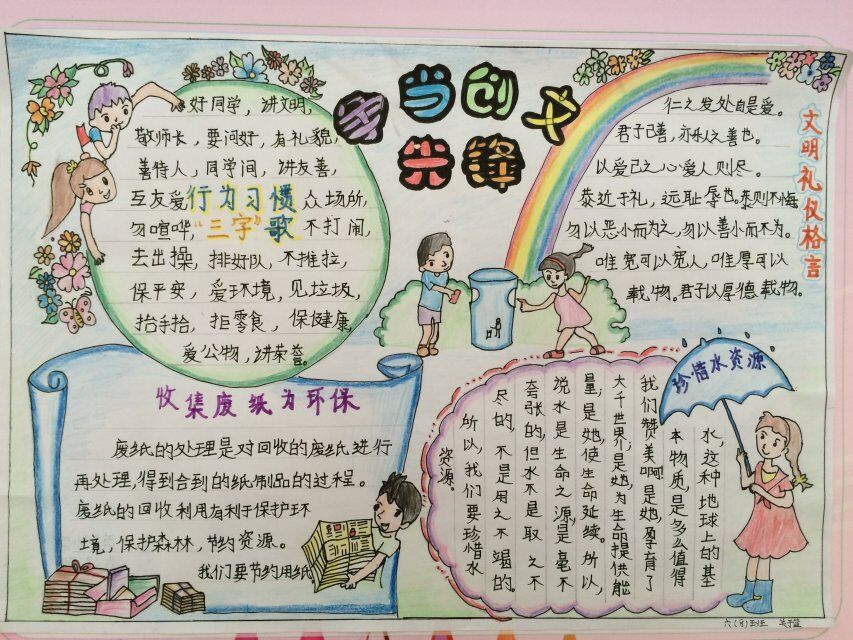 争当创文
先锋
好同学，讲文明，
敬师长，要问好，有礼貌，
善待人，同学间，讲友善，
互友爱 行为习惯 众场所，
勿喧哗，"三字"歌 不打闹，
去出操，排好队，不推拉，
保平安，爱环境，见垃圾，
抬手拾，拒零食，保健康，
爱公物，讲荣誉。
文明礼仪格言
仁之发处自是爱。
君子己善，亦乐人之善也。
以爱己之心爱人则尽。
恭近于礼，远耻辱也。恭则不悔
勿以恶小而为之，勿以善小而不为。
唯宽可以宽人，唯厚可以
载物。君子以厚德载物。
收集废纸为环保
废纸的处理是对回收的废纸进行
再处理，得到合到的纸制品的过程。
废纸的回收利用有利于保护环
境，保护森林，节约资源。
我们要节约用纸
珍惜水资源
水，这种地球上的基
本物质，是多么值得
我们赞美啊！是她，孕育了
大千世界；是她，为生命提供能
量；是她，使生命延续。所以，
说水是生命之源，是毫不
夸张的，但水不是取之不
尽的，不是用之不竭的。
所以，我们要珍惜水
资源。
六(8)班